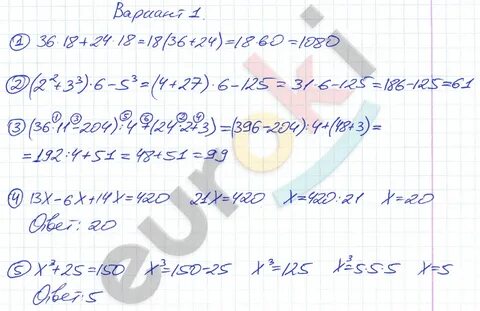 Вариант 1.
① 36·18+24·18=18(36+24)=18·60=1080
② (2²+3³)·6-5³=(4+27)·6-125=31·6-125=186-125=61
③ (36·11-204):4+(24·2+3)=(396-204):4+(48+3)=
=192:4+51=48+51=99
④ 13x-6x+14x=420 21x=420 x=420:21 x=20
Ответ: 20
⑤ x³+25=150 x³=150-25 x³=125 x³=5·5·5 x=5
Ответ: 5
euroki